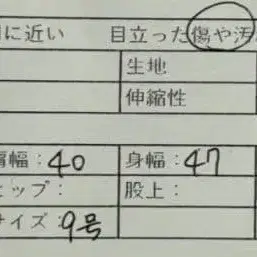 に近い 目立った傷や汚
生地
伸縮性
肩幅：40 身幅：47
ヒップ： 股上：
サイズ：9号